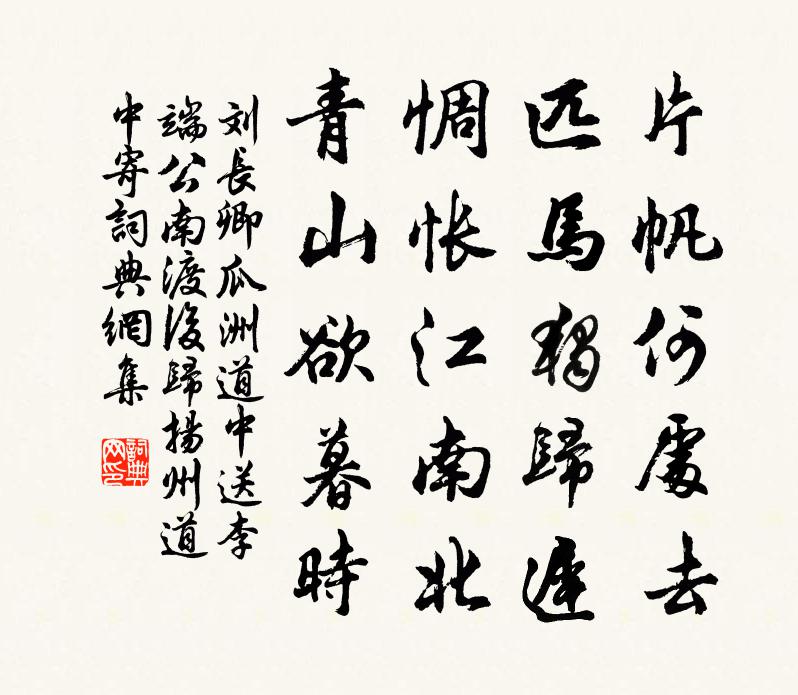 片帆何處去
匹馬獨歸遲
惆悵江南北
青山欲暮時
刘長卿瓜洲道中送李
端公南渡後歸揚州道
中寄詞典網集
詞典网印